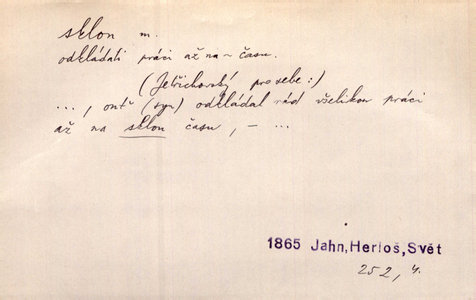 sklon m.
odkládati práci až na ~ času.
(Jetřichovský pro sebe:)
..., ontě (syn) odkládal rád všelikou práci
až na sklon času, – ...
1865 Jahn, Herloš, Svět
252, 4.